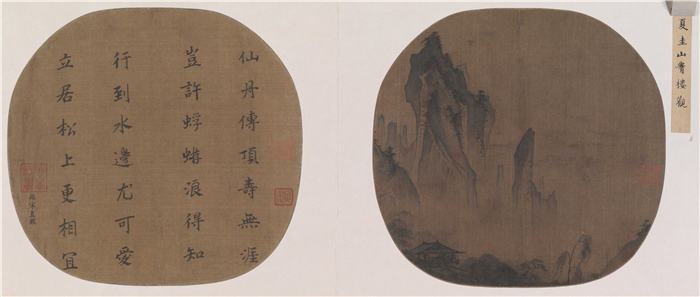 夏圭山樓觀
仙丹傳頂壽無涯
豈許蜉蝣浪得知
行到水邊尤可愛
立居松上更相宜